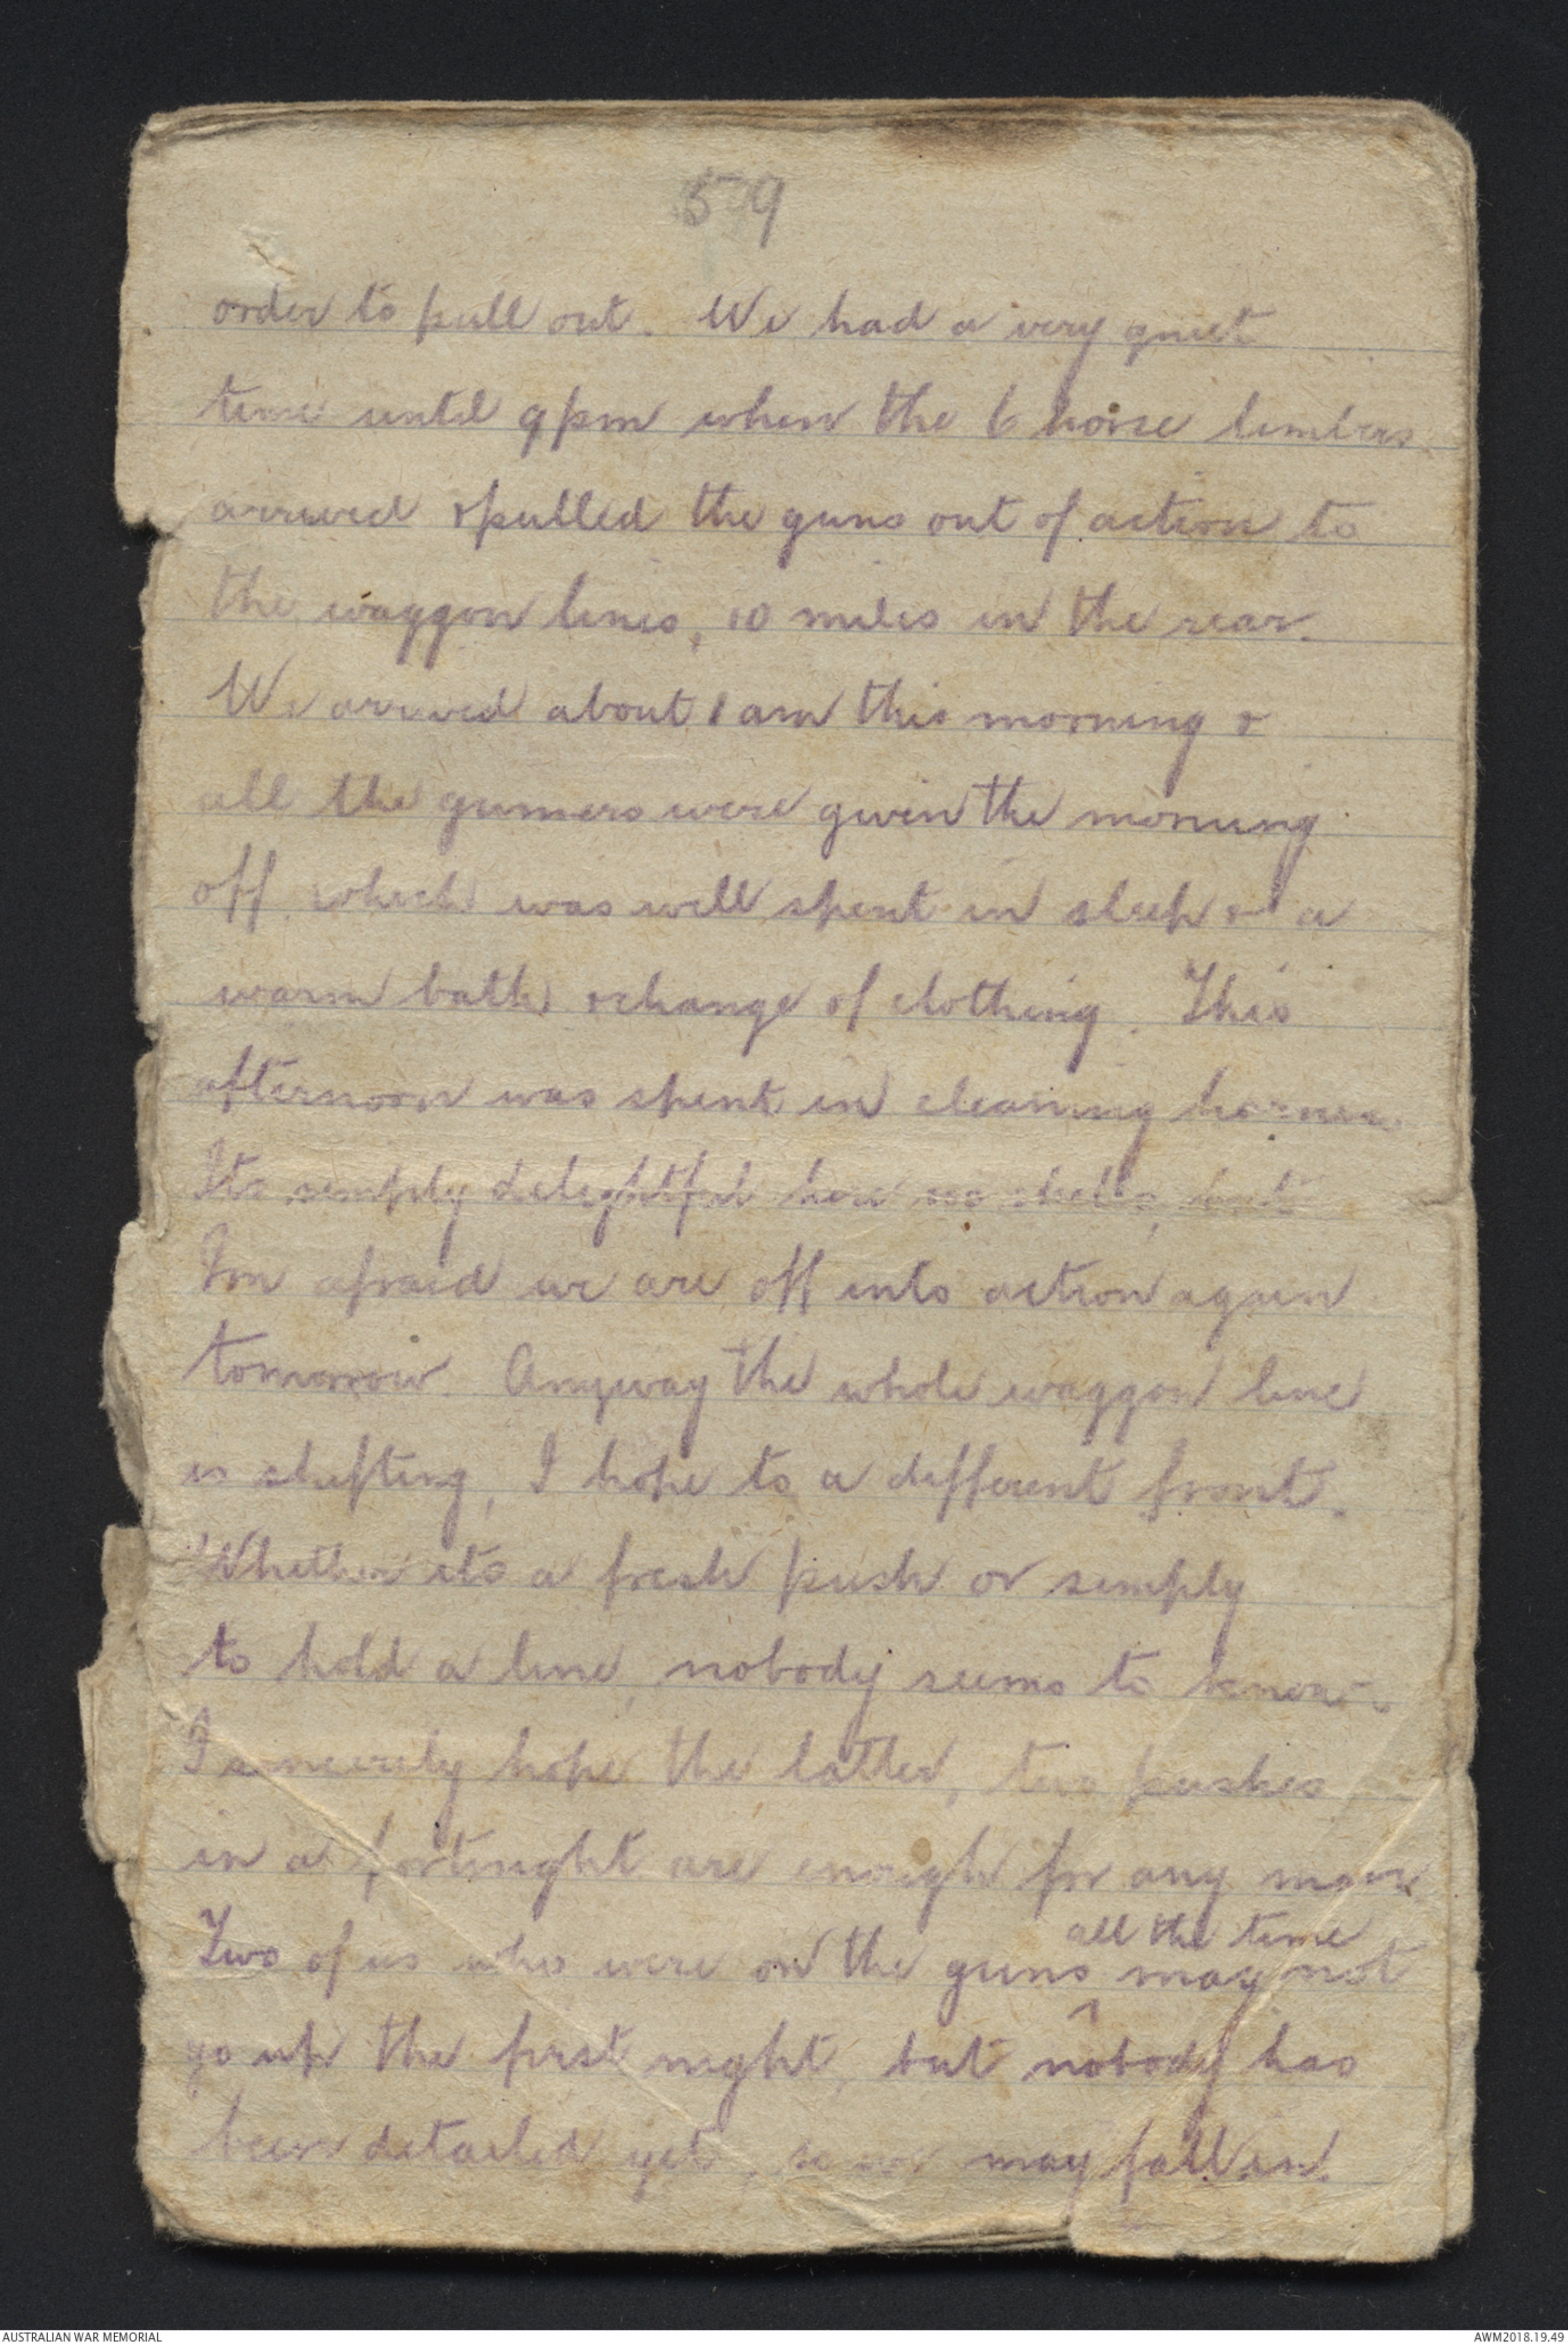 59
order to pull out. We had a very quiet
time until 9pm when the 6 horse limbers
arrived & pulled the guns out of action to
the waggon lines, 10 miles in the rear.
We arrived about 1 am this morning &
all the gunners were given the morning
off which was well spent in sleep & a
warm bath & change of clothing. This
afternoon was spent in cleaning harness.
Its simply delightful here no shells, but
Im afraid we are off into action again
tomorrow. Anyway the whole waggon line
is shifting, I hope to a different front.
Whether its a fresh push or simply
to hold a line, nobody seems to know.
I sincerely hope the latter, two pushes
in a fortnight are enough for any man
all the time
Two of us who were on the guns ^ may not
go up the first night, but nobody has
been detailed yet, so we may fall in.
AUSTRALIAN WAR MEMORIAL
AWM2018.19.49